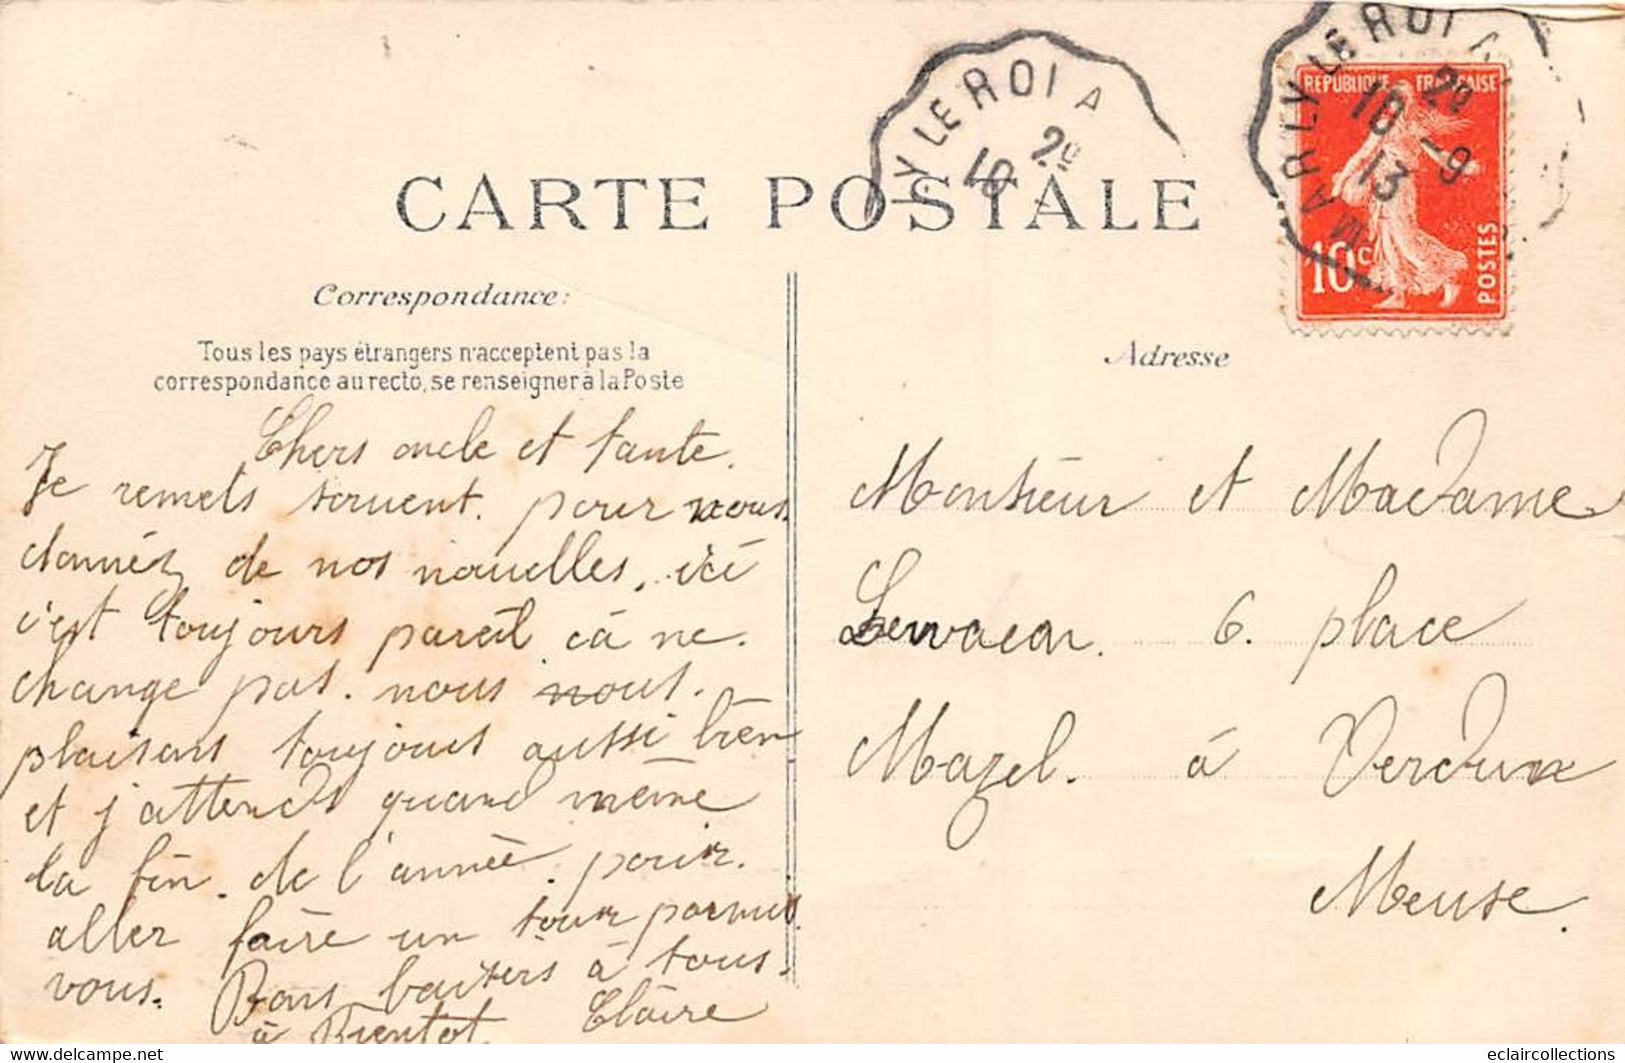 LY LE ROI A
2°
10
MARLY LE ROI A
2°
10 -9
13
REPUBLIQUE FRANÇAISE
10c
POSTES
CARTE POSTALE
Correspondance:
Tous les pays étrangers n'acceptent pas la
correspondance au recto, se renseigner à la Poste
Chers oncle et tante.
Je remets souvent. pour vous
donnéz de nos nouvelles, ici
c'est toujours pareil cà ne.
change pas. nous nous.
plaisons toujours aussi bien
et j'attends quand même
la fin. de l'année. pour.
aller faire un tour parmis
vous. Bons baisers à tous.
à Bientot. Claire
Adresse
Monsieur et Madame
6. place
Mazel. à Verdun
Meuse.
eclaircollections